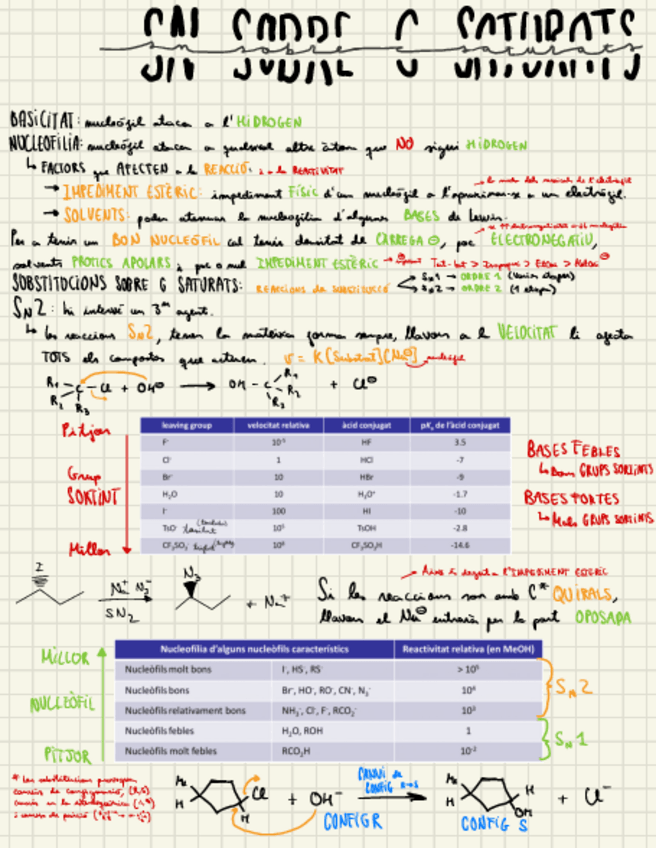 SN SOBRE C SATURATS
sn sobre c saturats
BASICITAT: nucleòfil ataca a l'HIDROGEN
NUCLEOFILIA: nucleòfil ataca a qualsevol altre àtom que NO sigui HIDROGEN
↳ FACTORS que AFECTEN a la REACCIÓ: i a la REACTIVITAT
→ IMPEDIMENT ESTÈRIC: impediment físic d'un nucleòfil a l'aproximar-se a un electròfil.
→ SOLVENTS: poden atenuar la nucleofilia d'algunes BASES de Lewis.
Per a tenir un BON NUCLEÒFIL cal tenir densitat de CÀRREGA ⊖, poc ELECTRONEGATIU,
solvents PRÒTICS APOLARS i poc o nul IMPEDIMENT ESTÈRIC
SUBSTITUCIONS SOBRE C SATURATS: REACCIONS de SUBSTITUCIÓ
SN1 → ORDRE 1 (varies etapes)
SN2 → ORDRE 2 (1 etapa)
SN2: hi intervé un 3er agent.
↳ les reaccions SN2, tenen la mateixa forma sempre, llavors a la VELOCITAT li afecta
TOTS els compostos que actuen. v = K[Substrat][Nu⊖] nucleòfil
R1 R2 R3 C-Cl + OH⊖ → OH-C R1 R2 R3 + Cl⊖
Pitjor
Grup SORTINT
Millor
leaving group velocitat relativa àcid conjugat pKa de l'àcid conjugat
F⁻ 10⁻⁵ HF 3.5
Cl⁻ 1 HCl -7
Br⁻ 10 HBr -9
H₂O 10 H₃O⁺ -1.7
I⁻ 100 HI -10
TsO⁻ 10⁵ TsOH -2.8
CF₃SO₃⁻ triflat 10⁸ CF₃SO₃H -14.6
BASES FEBLES
↳ Bons GRUPS SORTINTS
BASES FORTES
↳ Mals GRUPS SORTINTS
I Na⁺ N₃⁻ SN2 N₃ + Na⁺
Això és degut a l'IMPEDIMENT ESTÈRIC
Si les reaccions son amb C* QUIRALS,
llavors el Nu⊖ entrarà per la part OPOSADA
MILLOR
NUCLEÒFIL
PITJOR
Nucleofilia d'alguns nucleòfils característics Reactivitat relativa (en MeOH)
Nucleòfils molt bons I⁻, HS⁻, RS⁻ > 10⁵
Nucleòfils bons Br⁻, HO⁻, RO⁻, CN⁻, N₃⁻ 10⁴
Nucleòfils relativament bons NH₃, Cl⁻, F⁻, RCO₂⁻ 10³
Nucleòfils febles H₂O, ROH 1
Nucleòfils molt febles RCO₂H 10⁻²
SN2
SN1
Me H Cl H + OH⁻ CANVI de CONFIG R→S Me H H OH + Cl⁻
CONFIG R CONFIG S